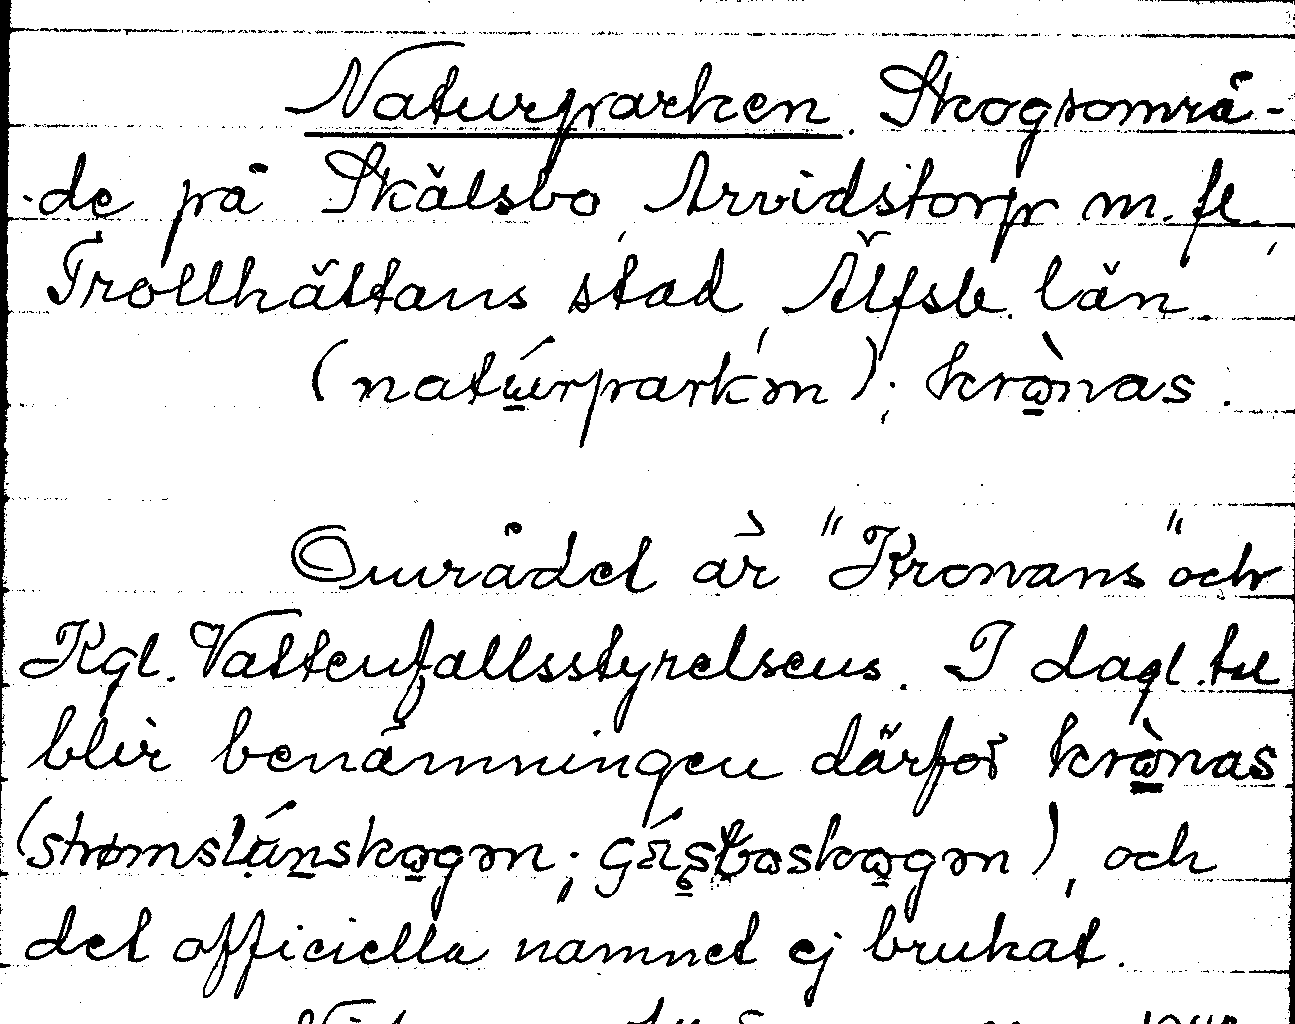 Naturparken. Skogsområ-
de på Skälsbo, Arvidstorp m. fl.,
Trollhättans stad, Älfsb. län.
(natu̱´rparkən); krò̱nas.
Området är "Kronans" och
Kgl. Vattenfallsstyrelsens. I dagl. tal
blir benämningen därför krò̱nas
och
det officiella namnet ej brukat.